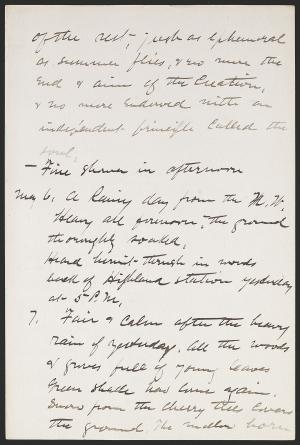 of the rest, just as ephemeral
as summer flies, & no more the
end & aim of the Creation,
& no more endowed with an
independent principle called the
soul.
— Fine shower in afternoon
May 6. A Rainy day from the N.W.
Heavy all forenoon, the ground
thoroughly soaked,
Heard hermit-thrush in woods
back of Highland Station yesterday
at 5 P.M.
7. Fair & Calm after the heavy
rain of yesterday. All the woods
& groves full of young leaves
Green shade has come again.
Snow from the Cherry trees covers
the ground. The mellow horn